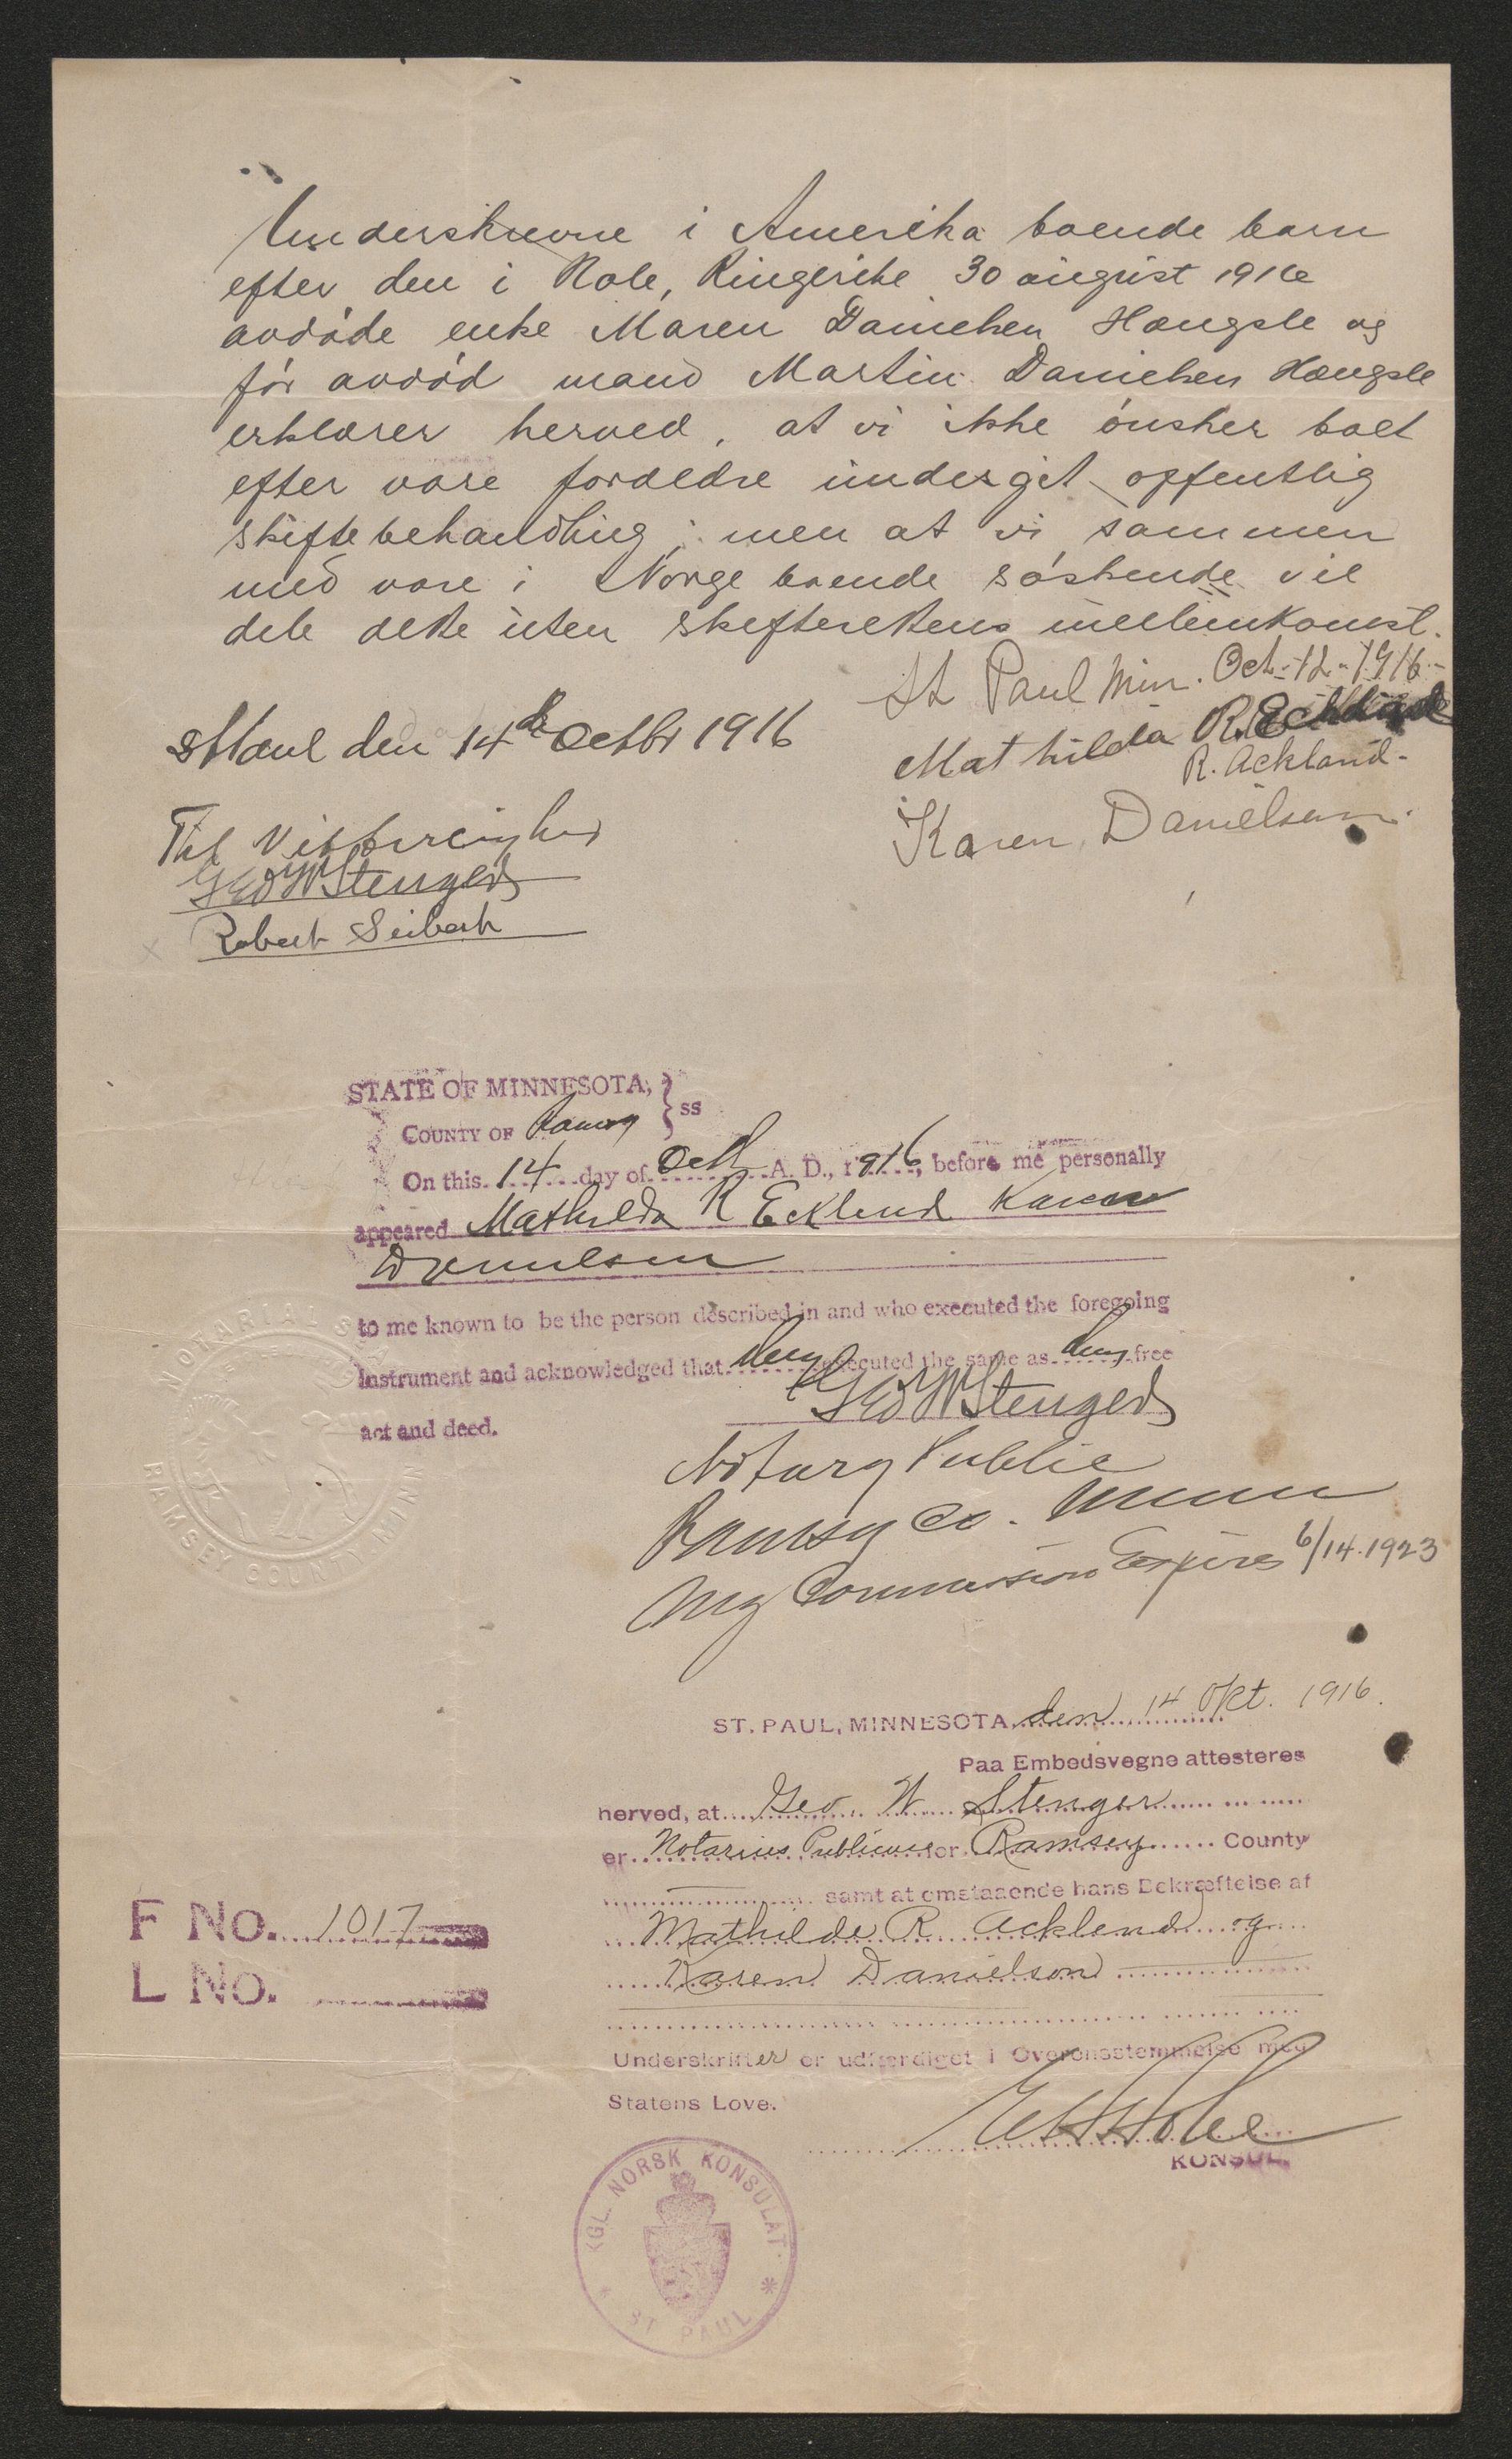 Underskrevne i Amerika boende barn
efter den i Hole, Ringerike 30 august 1916
avdøde enke Maren Danielsen Hængsle og
før avdød mand Martin Danielsen Hængsle
erklærer herved, at vi ikke ønsker boet
efter vore forældre undergit offentlig
skiftebehandling; men at vi sammen
med vore i Norge boende søskende vil
dele dette uten skifterettens mellemkomst.
St Paul Min. Oct-12-1916-
Mathilda R. Ecklund
R. Ackland-
Karen Danielson.
St Paul den 14de Octbr 1916
Til Vitterlighed
Geo W Stenger
Robert Seibert
STATE OF MINNESOTA, } ss
COUNTY OF Ramsey
On this 14 day of Oct A. D., 1916, before me personally
appeared Mathilda R Ecklund Karen
Danielson
to me known to be the person described in and who executed the foregoing
instrument and acknowledged that they executed the same as their free
act and deed.
NOTARIAL SEAL
RAMSEY COUNTY MINN
Geo W Stenger
Notary Public
Ramsey Co. Minn
My Commission Expires 6/14.1923
ST. PAUL, MINNESOTA, den 14 Okt. 1916.
Paa Embedsvegne attesteres
herved, at Geo. W. Stenger
er Notarius Publicus for Ramsey County
samt at omstaaende hans Bekræftelse af
Mathilde R. Acklend og
Karen Danielson
Underskrifter er udfærdiget i Overensstemmelse med
Statens Love.
KONSUL.
F NO. 1017
L NO.
KGL. NORSK KONSULAT.
* ST PAUL *